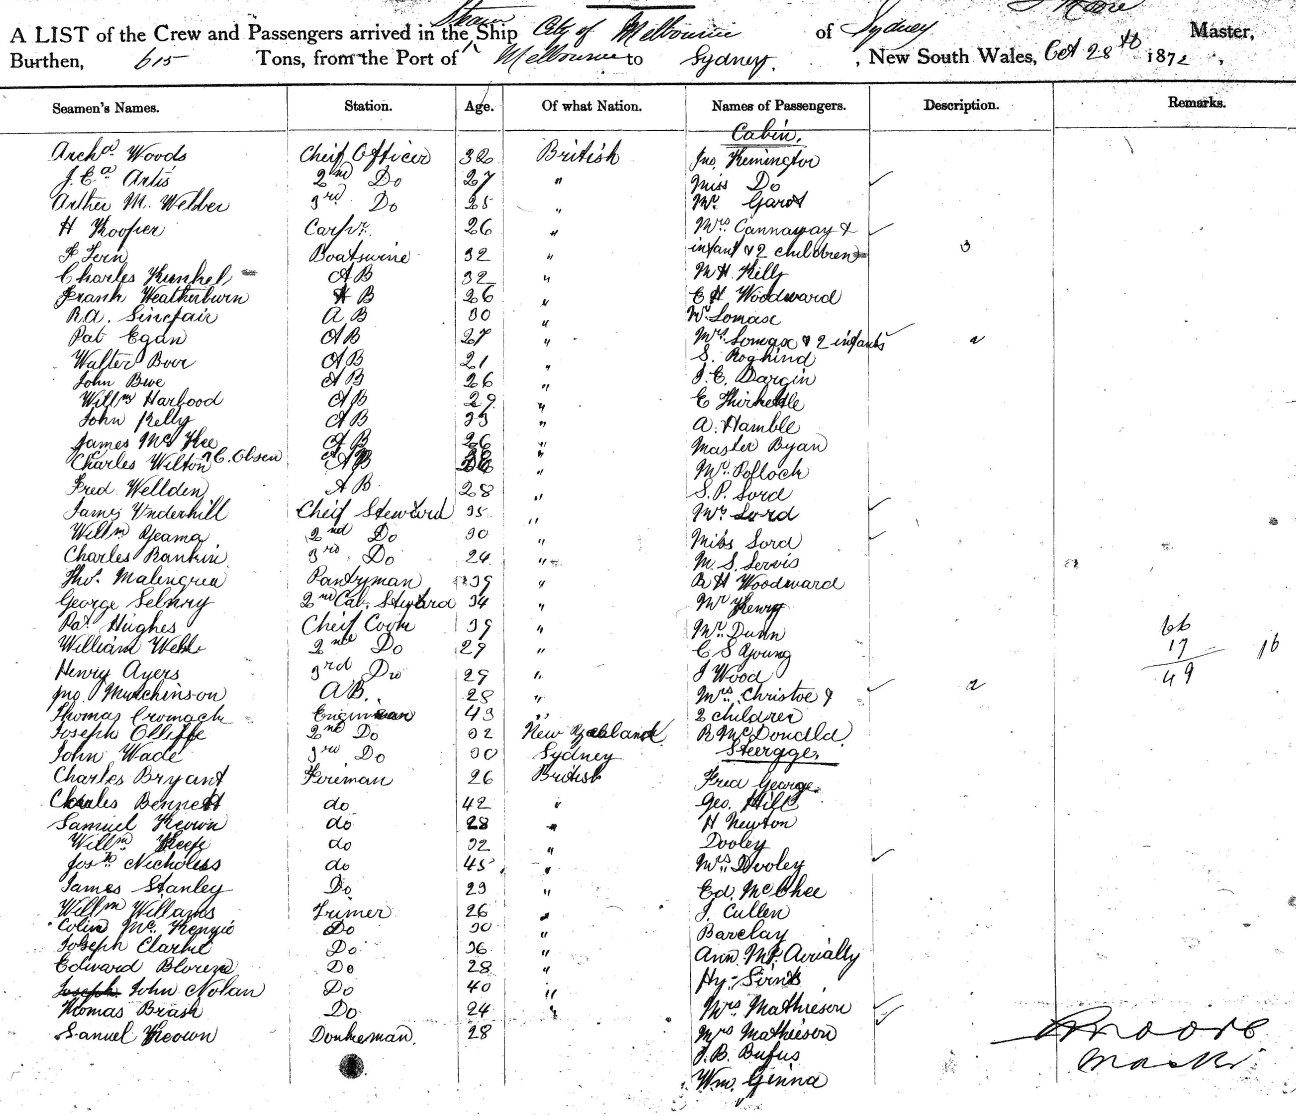 Steam City of Melbourne Sydney J Moore
A LIST of the Crew and Passengers arrived in the Ship of Master,
Burthen, 615 Tons, from the Port of Melbourne to Sydney, New South Wales, Oct 28th 1872.
Seamen's Names. Station. Age. Of what Nation. Names of Passengers. Description. Remarks.
Cabin.
Archd Woods Cheif Officer 32 British Jno Remington
J. C. Artis 2nd Do 27 " Miss Do
Arther M. Webber 3rd Do 25 " Mr Garot
H Hooper Carpr. 26 " Mrs Cannaway &
F Fern Boatswine 32 " infant & 2 children 3
Charles Kunkel A B 32 " M H Kelly
Frank Weatherburn A B 26 " C H Woodward
R. A. Sincfair A B 30 " Mr Lomax
Pat Egan A B 27 " Mrs Lomax & 2 infants 2
Walter Boor A B 21 " S. Roghind
John Bwe A B 26 " J. C. Dargin
Willm Harbood A B 29 " E
John Kelly A B 33 " A. Hamble
James McKee A B 26 " Master Byan
Charles Wilton C. Olsen A B " Mr Pollock
Fred Wellden A B 28 " S. P. Lord
James Underhill Cheif Steward 35 " Mrs Lord
Willm Yeama 2nd Do 30 " Miss Lord
Charles Rankin 3rd Do 24 " M S. Servis
Thos. Malengrea Pantryman 39 " R H Woodward
George Selnry 2nd Cab. Steward 34 " Mr Henry
Pat Hughes Cheif Cook 39 " Mr. Dunn 66
William Webb 2nd Do 29 " C S Young 17 16
Henry Ayers 3rd Do 29 " J Wood 49
Jno Mutchinson A B. 28 " Mrs Christoe & 2
Thomas Cromack 43 " 2 children
Joseph Olliffe 2nd Do 32 New Zealand R McDoneld
John Wade 3rd Do 30 Sydney Steerage.
Charles Bryant Fireman 26 British Fred George
Charles Bennett do 42 " Geo. Hill
Samuel Keown do 28 " H Newton
Willm Keefe do 32 " Dooley
Josh Nicholess do 45 " Mrs Dooley
James Stanley Do 23 " Ed. McGhee
Willm Willams Trimer 26 " J. Cullen
Colin Mc. Kenzie Do 30 " Barclay
Joseph Clarke Do 36 " Ann
Edward Do 28 " Hy.
Joseph John Nolan Do 40 " Mrs Mathieson
Thomas Brash Do 24 " Mrs Mathieson
Samuel Keown Donkeman. 28 J. B. Bufus
Wm. Ginna
J Moore
Master